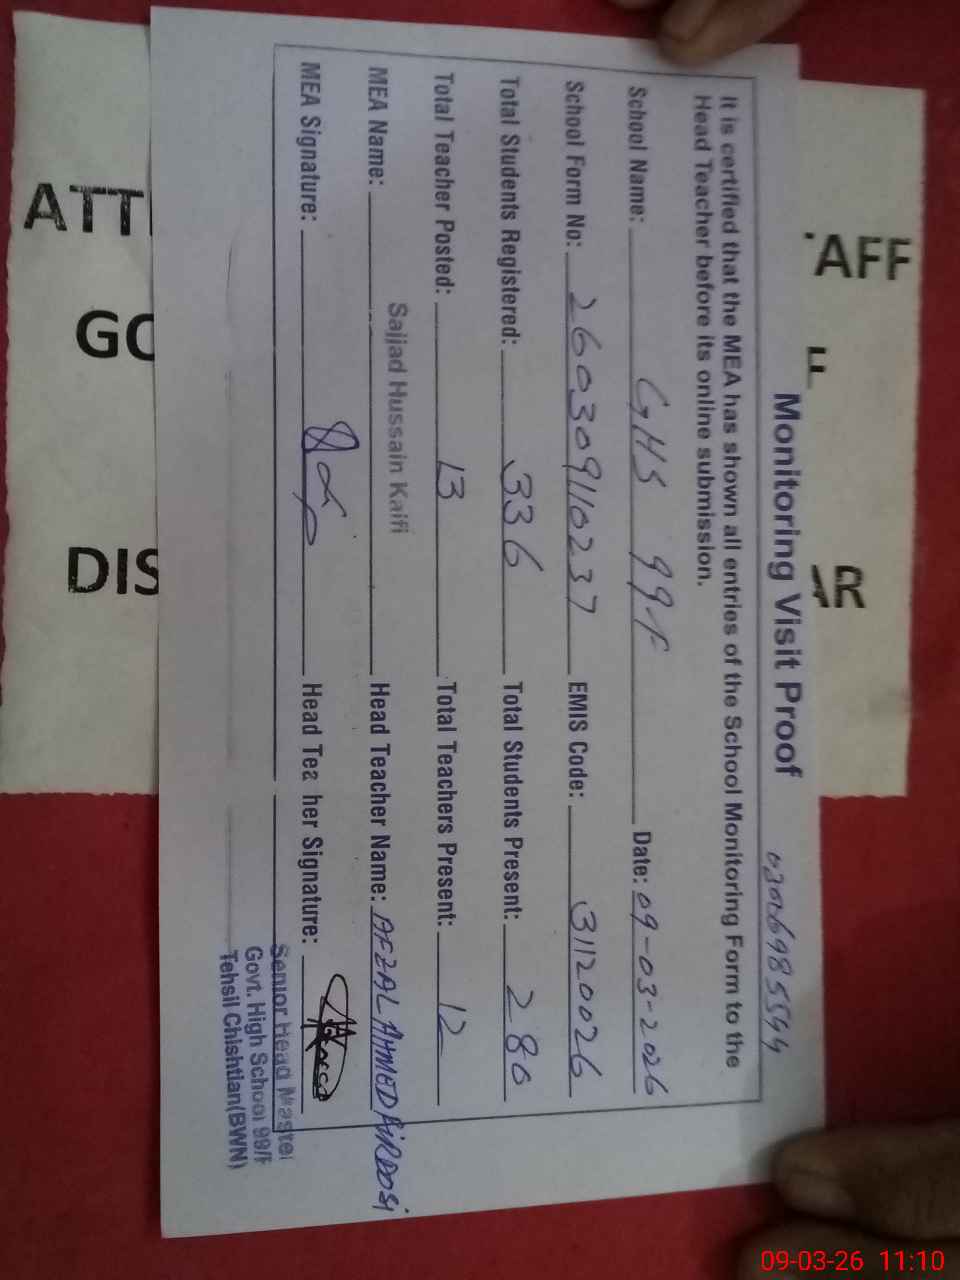 Monitoring Visit Proof
It is certified that the MEA has shown all entries of the School Monitoring Form to the
Head Teacher before its online submission.
School Name: GHS 99-F Date: 09-03-2026
School Form No: 260309110237 EMIS Code: 31120026
Total Students Registered: 336 Total Students Present: 280
Total Teacher Posted: 13 Total Teachers Present: 12
MEA Name: Sajjad Hussain Kaifi Head Teacher Name: AFZAL AHMED FIRDOSI
MEA Signature: Head Tea her Signature:
Senior Head Master
Govt. High School 99/F
Tehsil Chishtian(BWN)
ATT
AFF
GO
DIS
AR
09-03-26 11:10